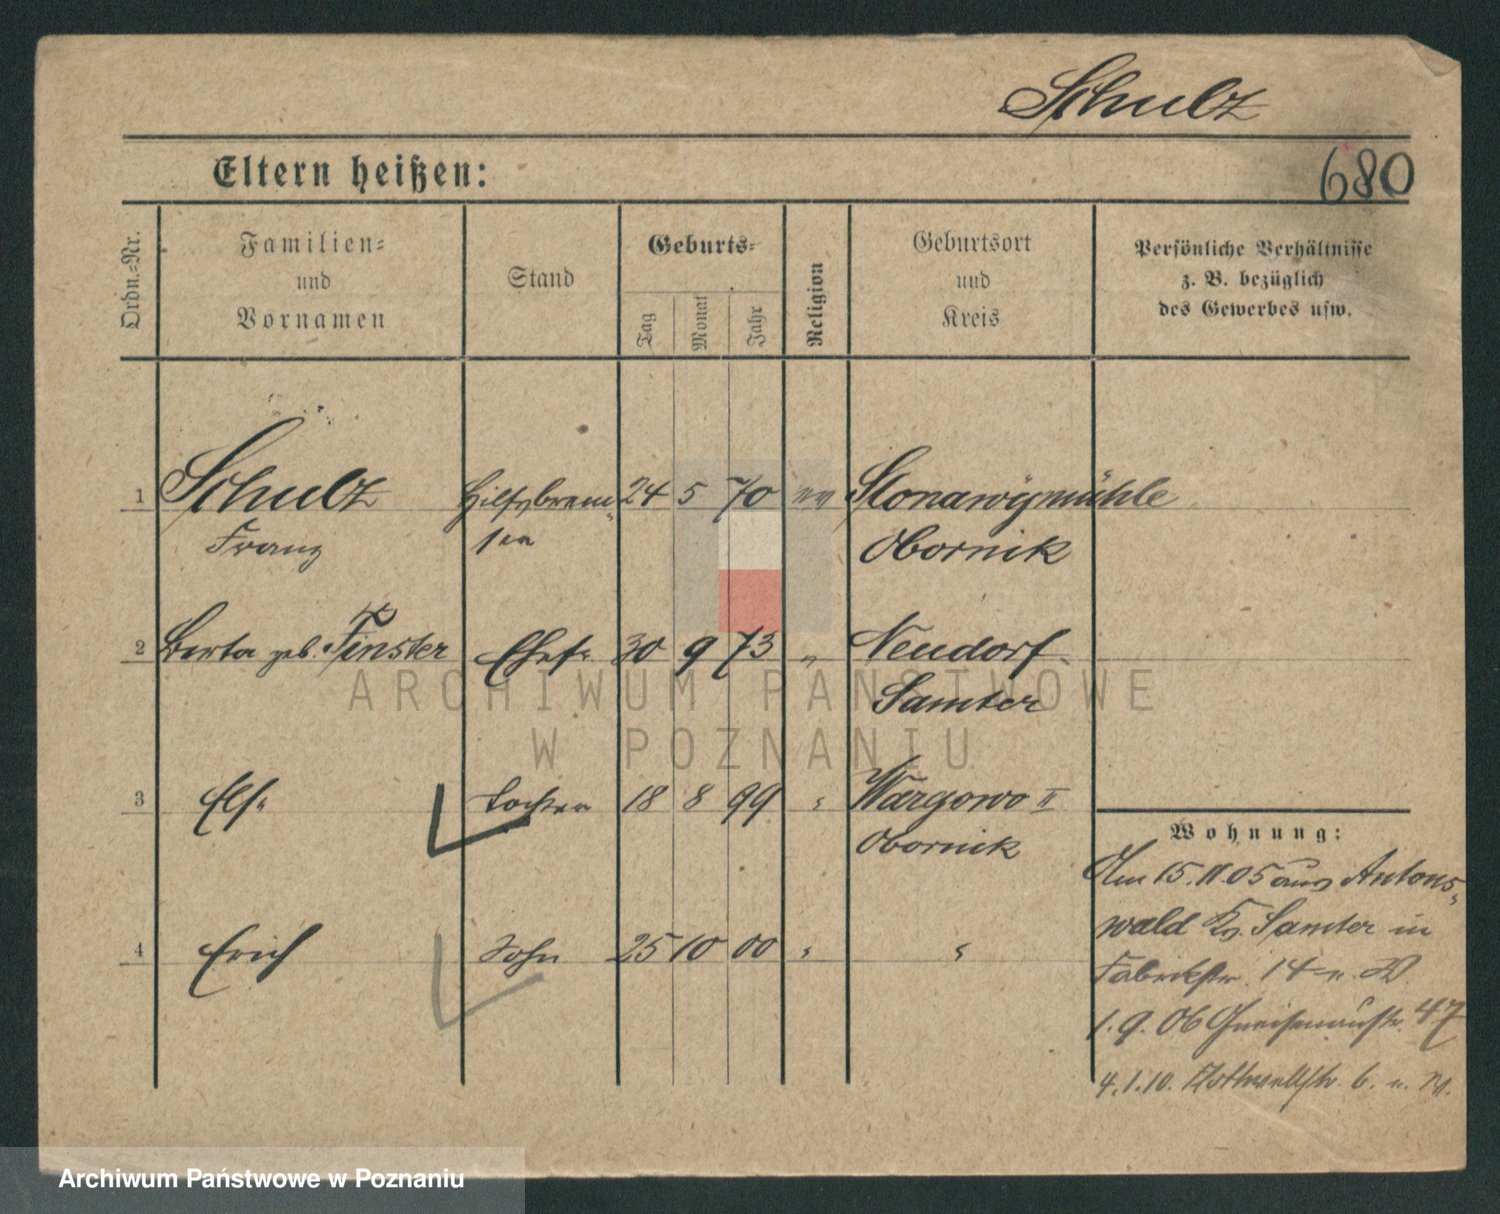 Schulz
Eltern heißen:
680
Ordn.-Nr.
Familien-
und
Vornamen
Stand
Geburts-
Tag
Monat
Jahr
Religion
Geburtsort
und
Kreis
Persönliche Verhältnisse
z. B. bezüglich
des Gewerbes usw.
1 Schulz Hilfsbrem- 24 5 70 ev Slonawymühle
Franz ser Obornik
2 Berta geb. Finster Ehefr. 30 9 73 " Neudorf
Samter
3 Else Tochter 18 8 99 " Wargowo II
Obornik
4 Erich Sohn 25 10 00 " "
Wohnung:
Am 15.11.05 aus Antons-
wald Kr. Samter in
Fabrikstr. 14
1.9.06 Gneisenaustr. 47
4.1.10. 6.
ARCHIWUM PAŃSTWOWE
W POZNANIU
Archiwum Państwowe w Poznaniu